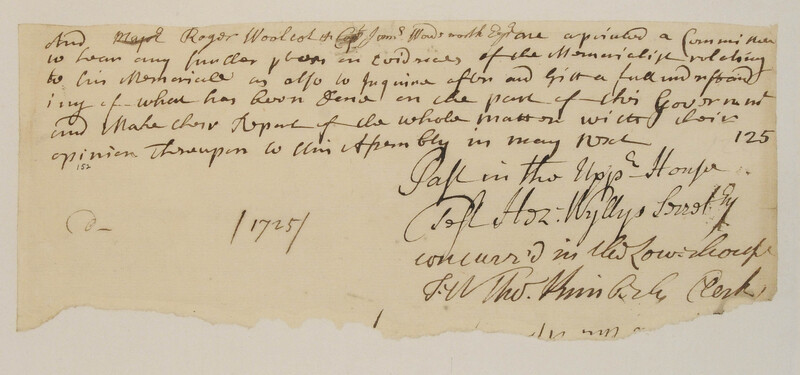 And Majr Roger Woolcot & Capt Jams Wodsworth Esqr are apointed a Committee
to hear any further pleas on evidences of the Memorialist relating
to his Memoriall as also to Inquire after and Gitt a full understand
ing of what has been Done on the part of this Governmt
and Make their Report of the whole matter with their
opinion Thereupon to this Assembly in may next 125
152
Past in the Uppr House
Test Hez: Wyllys Secret:ry
/1725/
concurr'd in the Lower house
Test Tho. Kimberly Clerk